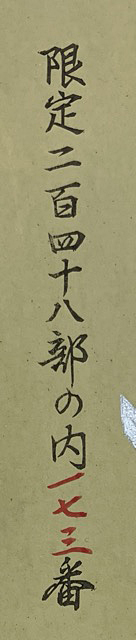 限定二百四十八部の内一七三番